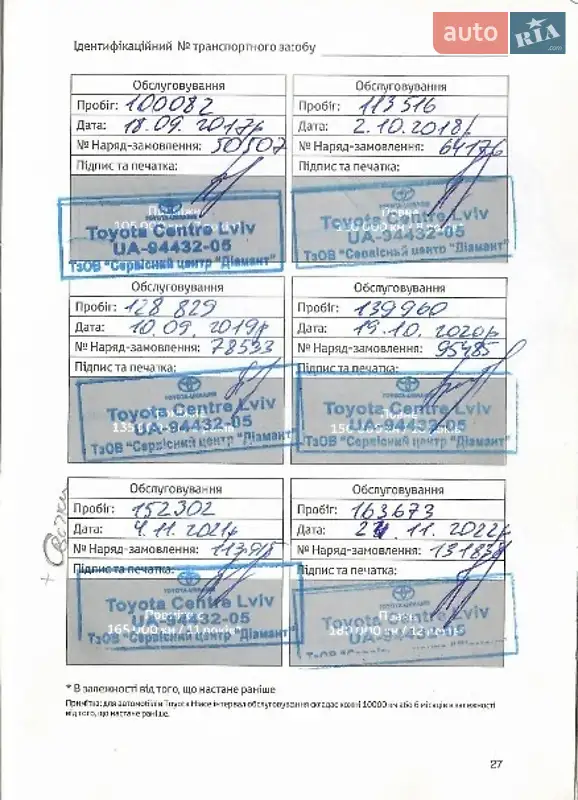 auto RIA.com
Ідентифікаційний № транспортного засобу
Обслуговування
Пробіг: 100082
Дата: 18.09.2017р
№ Наряд-замовлення: 50507
Підпис та печатка:
TOYOTA-UKRAINE
Toyota Centre Lviv
UA-94432-05
ТзОВ "Сервісний центр "Діамант"
Обслуговування
Пробіг: 113516
Дата: 2.10.2018р
№ Наряд-замовлення: 64176
Підпис та печатка:
TOYOTA-UKRAINE
Toyota Centre Lviv
UA-94432-05
ТзОВ "Сервісний центр "Діамант"
Обслуговування
Пробіг: 128 829
Дата: 10.09.2019р
№ Наряд-замовлення: 78533
Підпис та печатка:
TOYOTA-UKRAINE
Toyota Centre Lviv
UA-94432-05
ТзОВ "Сервісний центр "Діамант"
Обслуговування
Пробіг: 139960
Дата: 19.10.2020р
№ Наряд-замовлення: 95485
Підпис та печатка:
TOYOTA-UKRAINE
Toyota Centre Lviv
UA-94432-05
ТзОВ "Сервісний центр "Діамант"
Обслуговування
Пробіг: 152302
Дата: 4.11.2021р
№ Наряд-замовлення: 113915
Підпис та печатка:
TOYOTA-UKRAINE
Toyota Centre Lviv
UA-94432-05
165 000 км / 11 років*
ТзОВ "Сервісний центр "Діамант"
Обслуговування
Пробіг: 163673
Дата: 24.11.2022р
№ Наряд-замовлення:
Підпис та печатка:
TOYOTA-UKRAINE
Toyota Centre Lviv
UA-94432-05
180 000 км / 12 років*
ТзОВ "Сервісний центр "Діамант"
* В залежності від того, що настане раніше
Примітка: для автомобілів Toyota Hiace інтервал обслуговування складає кожні 10000 км або 6 місяців в залежності
від того, що настане раніше.
27